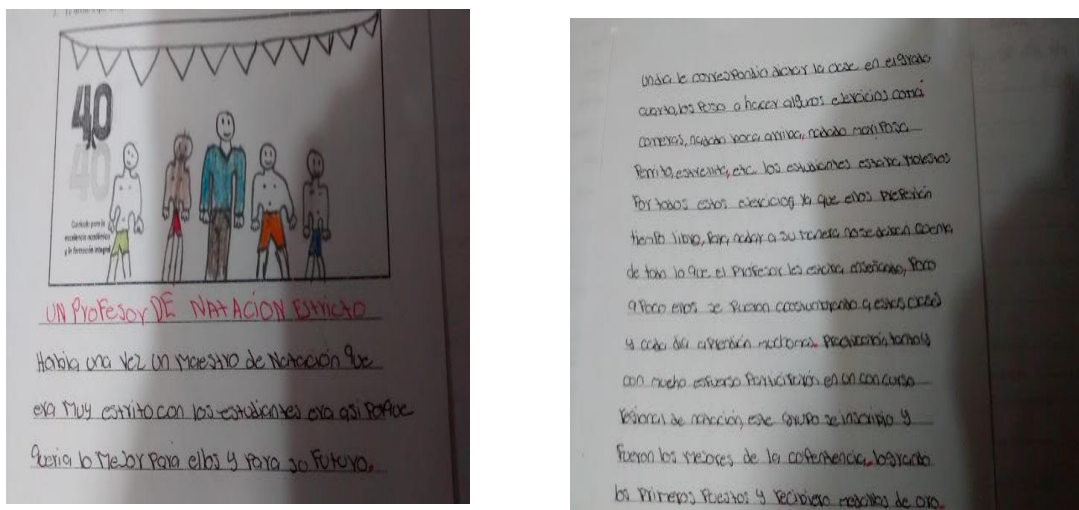 40
40
Contrato para la
excelencia académica
y la formación integral
UN Profesor DE NATACION Estricto
Habia una vez un maestro de Natación que
era muy estrito con los estudiantes era asi porque
queria lo mejor para ellos y para su futuro.
un dia le correspondio dictar la clase en el grado
cuarto, los puso a hacer algunos ejercicios como
carreras, nadado boca arriba, nadado mariposa
Perrito, estrellita, etc. los estudiantes estaba molestos
Por todos estos ejercicios ya que ellos preferian
tiempo libre, para nadar a su manera no se daban cuenta
de todo lo que el profesor les estaba enseñando, Poco
a poco ellos se fueron costumbrando a estas clases
y cada dia aprendian mucho mas. Practicaron tanto y
con mucho esfuerso Participaron en un concurso
regional de natacion, este grupo se inscribio y
fueron los mejores de la competencia, logrando
los primeros puestos y recibiero medallas de oro.